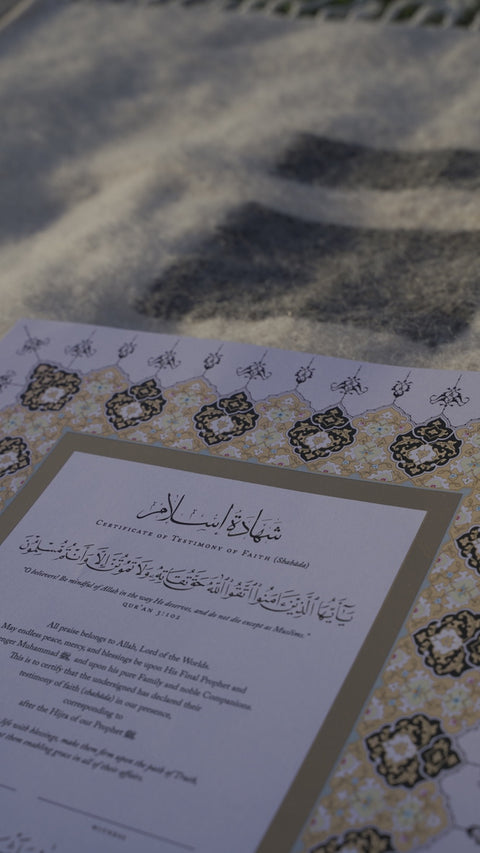 شهادة إسلام
CERTIFICATE OF TESTIMONY OF FAITH (Shahāda)
يَٰٓأَيُّهَا ٱلَّذِينَ ءَامَنُوا۟ ٱتَّقُوا۟ ٱللَّهَ حَقَّ تُقَاتِهِۦ وَلَا تَمُوتُنَّ إِلَّا وَأَنتُم مُّسْلِمُونَ
"O believers! Be mindful of Allah in the way He deserves, and do not die except as Muslims."
QUR'AN 3:102
All praise belongs to Allah, Lord of the Worlds.
May endless peace, mercy, and blessings be upon His Final Prophet and
nger Muhammad ﷺ, and upon his pure Family and noble Companions.
This is to certify that the undersigned has declared their
testimony of faith (shahāda) in our presence,
corresponding to
after the Hijra of our Prophet ﷺ
life with blessings, make them firm upon the path of Truth,
them enabling grace in all of their affairs.
WITNESS